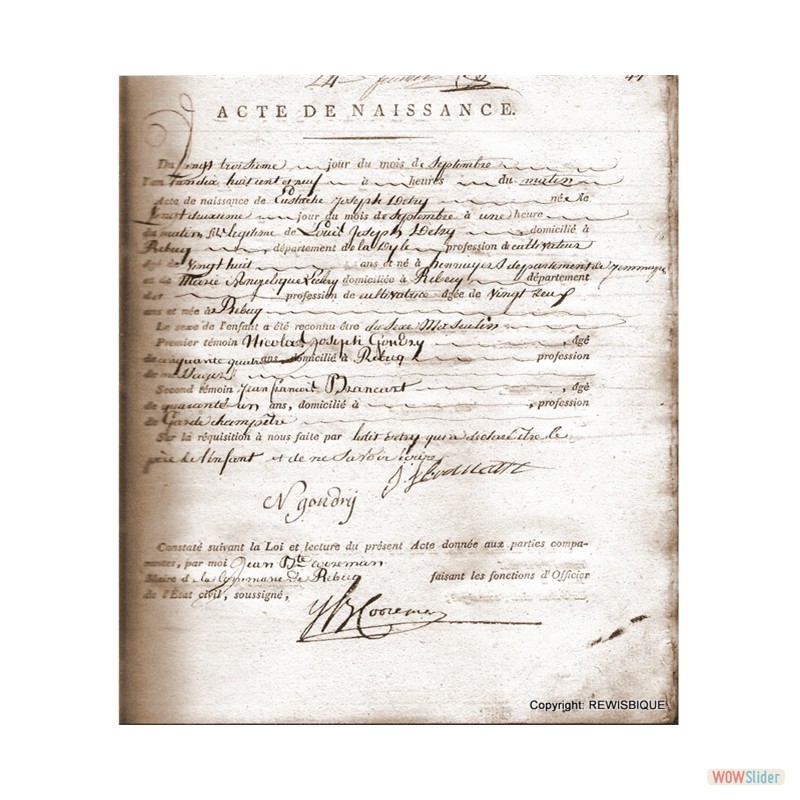 ACTE DE NAISSANCE.
Du vingt troisieme jour du mois de Septembre
l'an dix huit cent et neuf à heures du matin
Acte de naissance de Eustache Joseph Detry née le
vingt deuxieme jour du mois de Septembre à une heure
du matin, fils legitime de Louis Joseph Detry, domicilié à
Rebecq, département de la Dyle profession de cultivateur
âgé de vingt huit ans et né à hennuyers departement de jemmappe
et de Marie Angelique domiciliée à Rebecq département
de profession de cultivatrice âgée de vingt neuf
ans et née à Rebecq
Le sexe de l'enfant a été reconnu être du Sexe Masculin
Premier témoin Nicolas Joseph Gondry, âgé
de cinquante quatre ans, domicilié à Rebecq profession
de messager
Second témoin Jean francois Brancart, âgé
de quarante un ans, domicilié à , profession
de Garde champêtre
Sur la réquisition à nous faite par ledit Detry qui a declaré être le
père de l'enfant et de ne savoir écrire
N gondry
Constaté suivant la Loi et lecture du présent Acte donnée aux parties compa-
rantes, par moi Jean Bte Cooreman
Maire de la Commune de Rebecq faisant les fonctions d'Officier
de l'État civil, soussigné,
JB Cooreman
Copyright: REWISBIQUE
WOWSlider